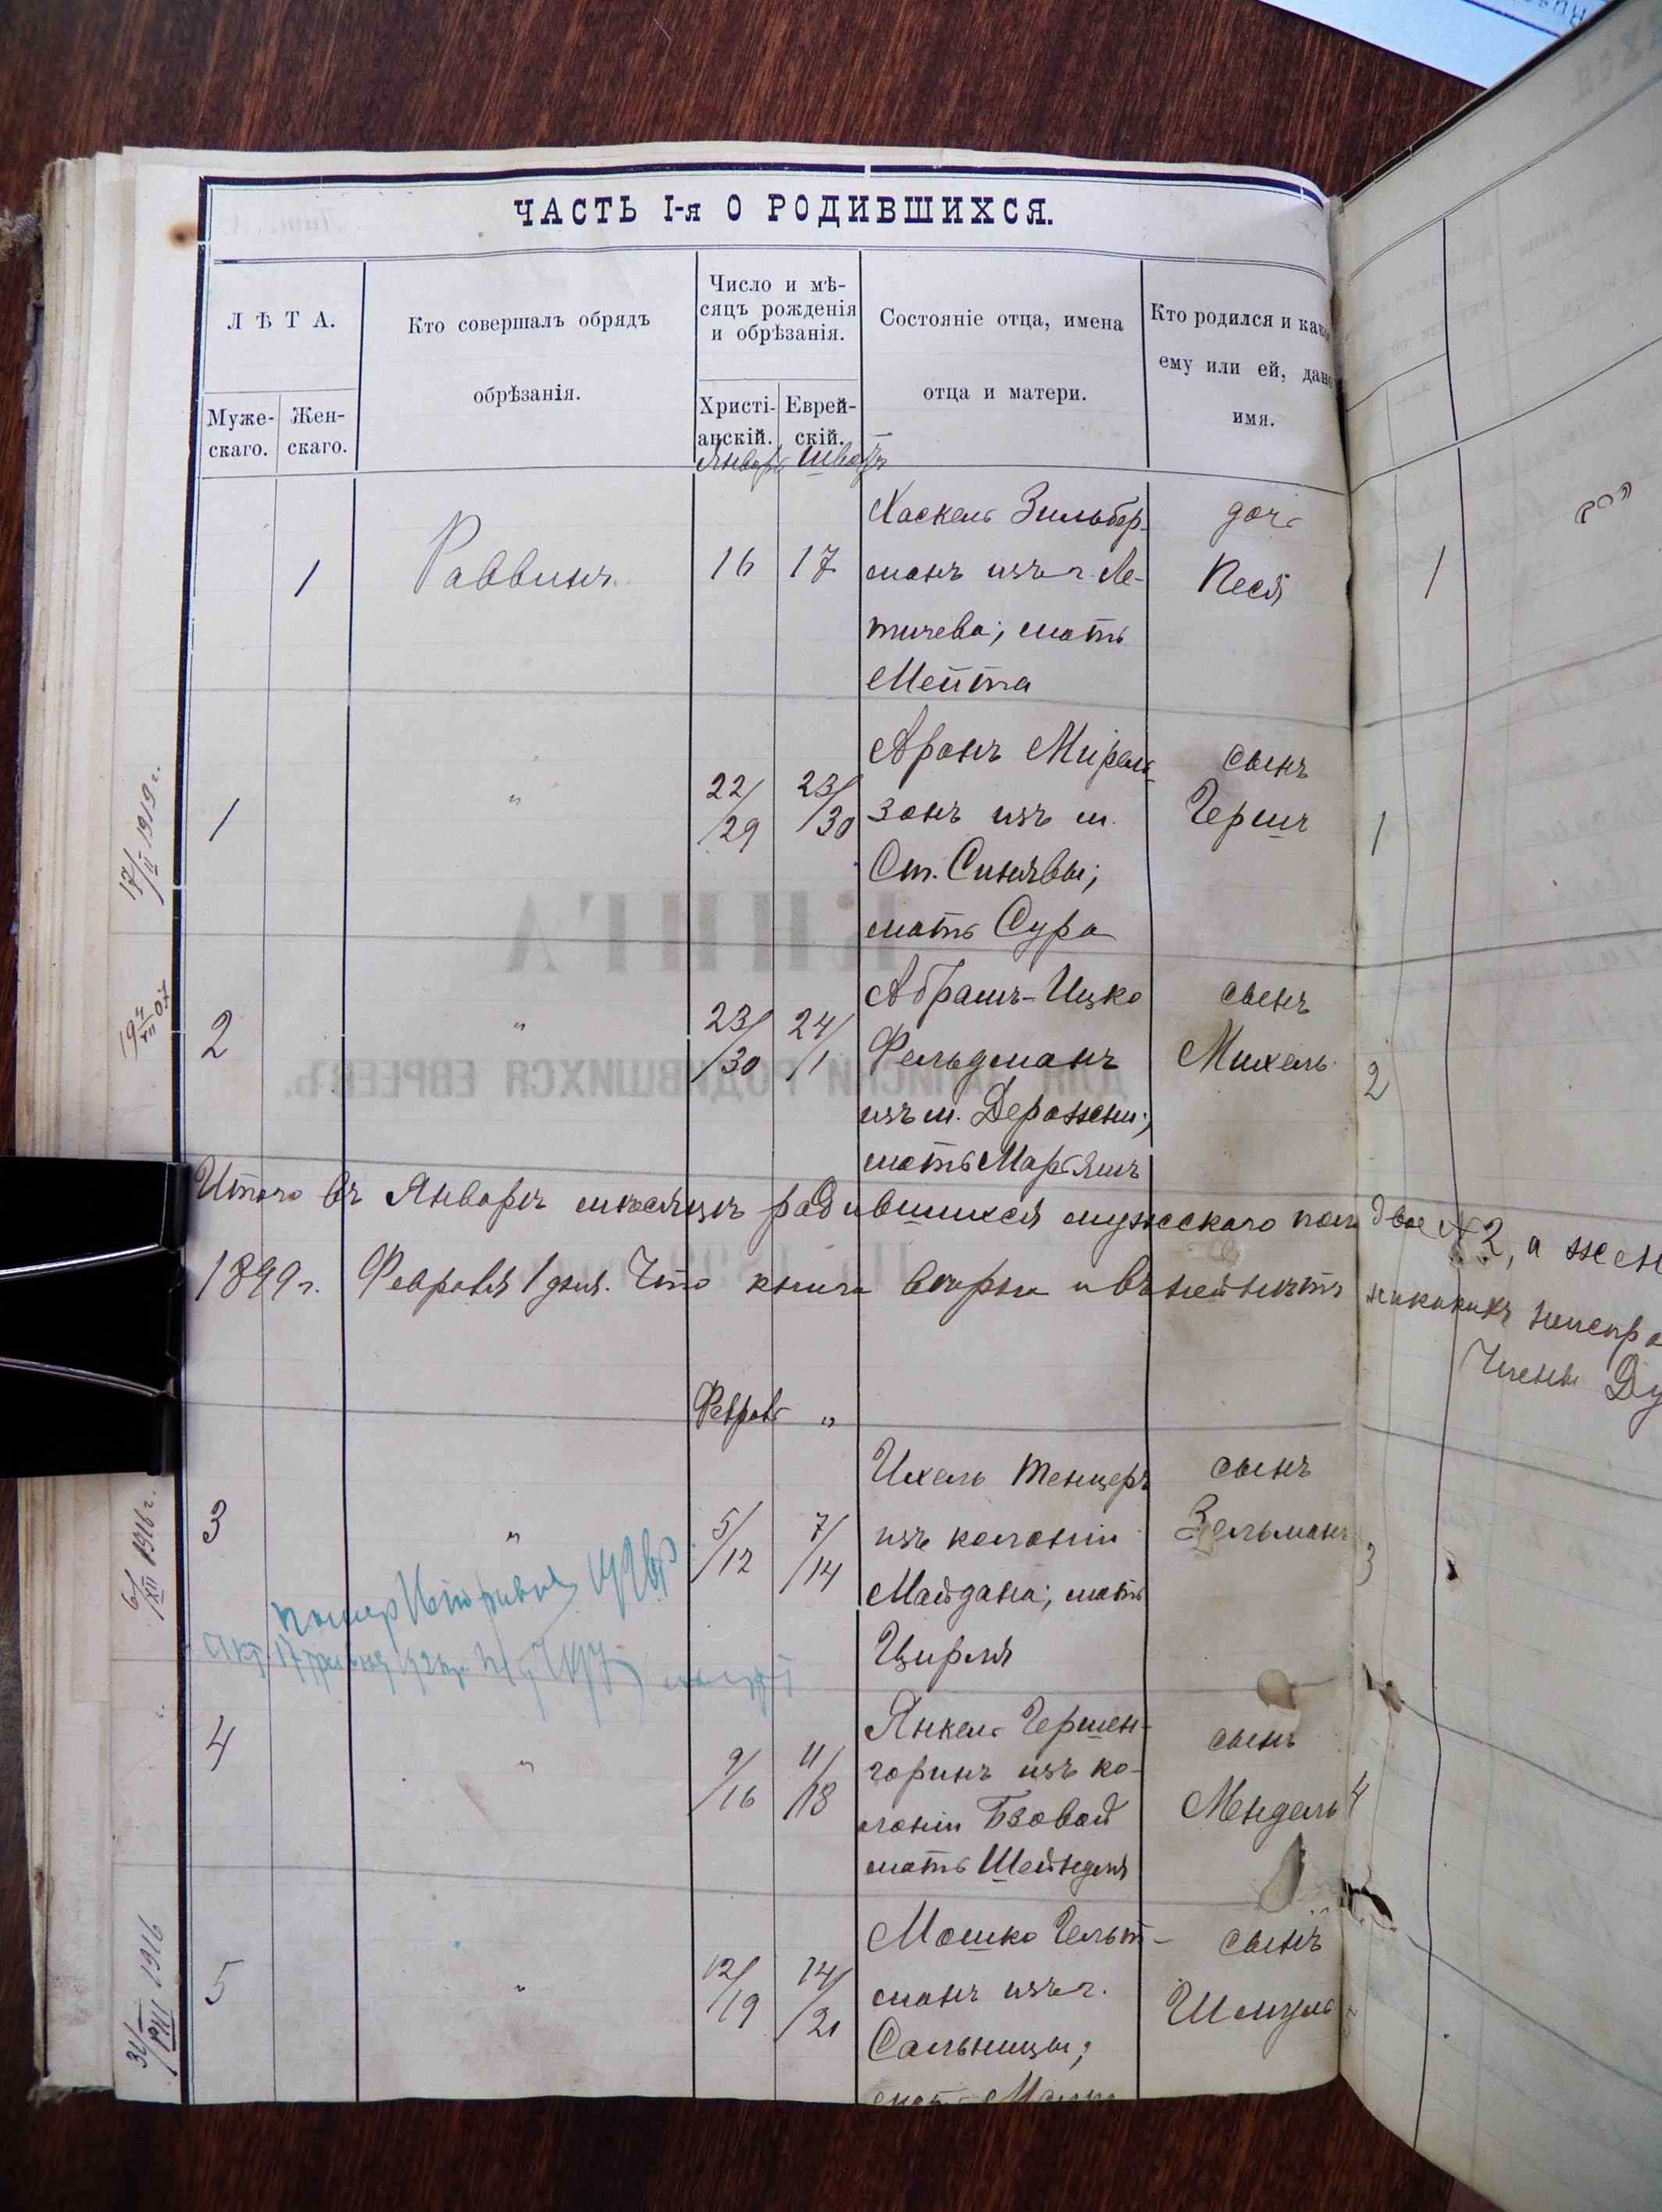 ЧАСТЬ I-я О РОДИВШИХСЯ.
ЛѢТА.
Муже-
скаго.
Жен-
скаго.
Кто совершалъ обрядъ
обрѣзанія.
Число и мѣ-
сяцъ рожденія
и обрѣзанія.
Христі-
анскій.
Еврей-
скій.
Состояніе отца, имена
отца и матери.
Кто родился и како
ему или ей, дано
имя.
Январь Шватъ
1
Раввинъ
16 17
Хаскель Зильбер-
манъ изъ г. Ле-
тичева; мать
Мейта
дочь
Песя
1
1
"
22/29 23/30
Аронъ Мирель-
зонъ изъ м.
Ст. Синявы;
мать Сура
сынъ
Гершъ
1
17/II 1919 г.
2
"
23/30 24/1
Абрамъ-Ицко
Фельдманъ
изъ м. Деражни;
мать Марьямъ
сынъ
Михель
2
Итого въ Январѣ мѣсяцѣ родившихся мужскаго пола двое №2, а жен
1899 г. Февраля 1 дня. Что книга вѣрна и въ ней нѣтъ никакихъ неиспра
Члены Ду
Февраль "
3
"
5/12 7/14
Ихель Тенцеръ
изъ колоніи
Майдана; мать
Цирля
сынъ
Зельманъ
3
6/XII 1916 г.
4
"
9/16 11/18
Янкель Гершен-
горинъ изъ ко-
лоніи Бзовой
мать Шейндля
сынъ
Мендель
4
5
"
12/19 14/21
Мошко Гельт-
манъ изъ г.
Сальницы;
сынъ
Шмуль
5
31/VIII 1916